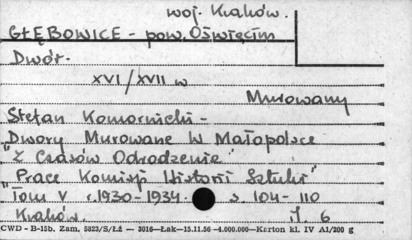 woj. Kraków.
GŁĘBOWICE - pow. Oświęcim
Dwór.
XVI/XVII w
Murowany
Stefan Komornicki -
"Dwory Murowane W Małopolsce
"Z Czasów Odrodzenie"
"Prace Komisji Historii Sztuki"
"Tom V r. 1930-1934. s. 104-110
Kraków. il. 6
CWD - B-15b. Zam. 5822/S/ŁŻ — 3016—Łak—15.11.56 -4.000.000—Karton kl. IV A1/200 g